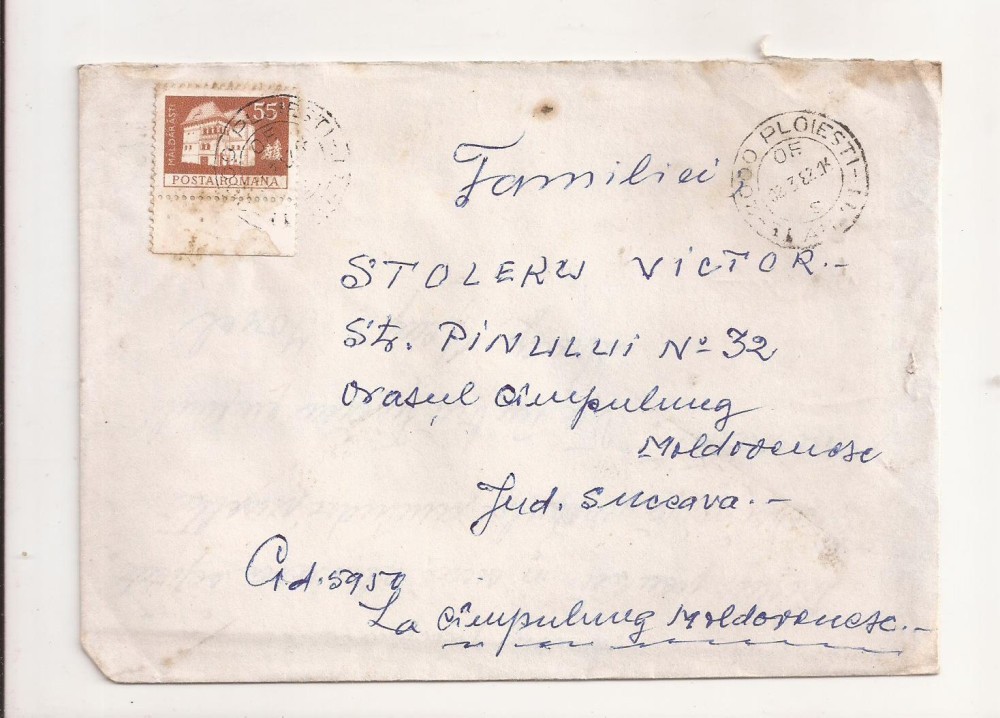 MĂLDĂRĂȘTI
55
POSTA ROMANA
PLOIESTI
2000 PLOIESTI-1
Familiei
STOLERU VICTOR.-
Str. PINULUI Nº 32
Orașul Cîmpulung
Moldovenesc
Jud. Suceava.-
Cod. 5950
La Cîmpulung Moldovenesc.-